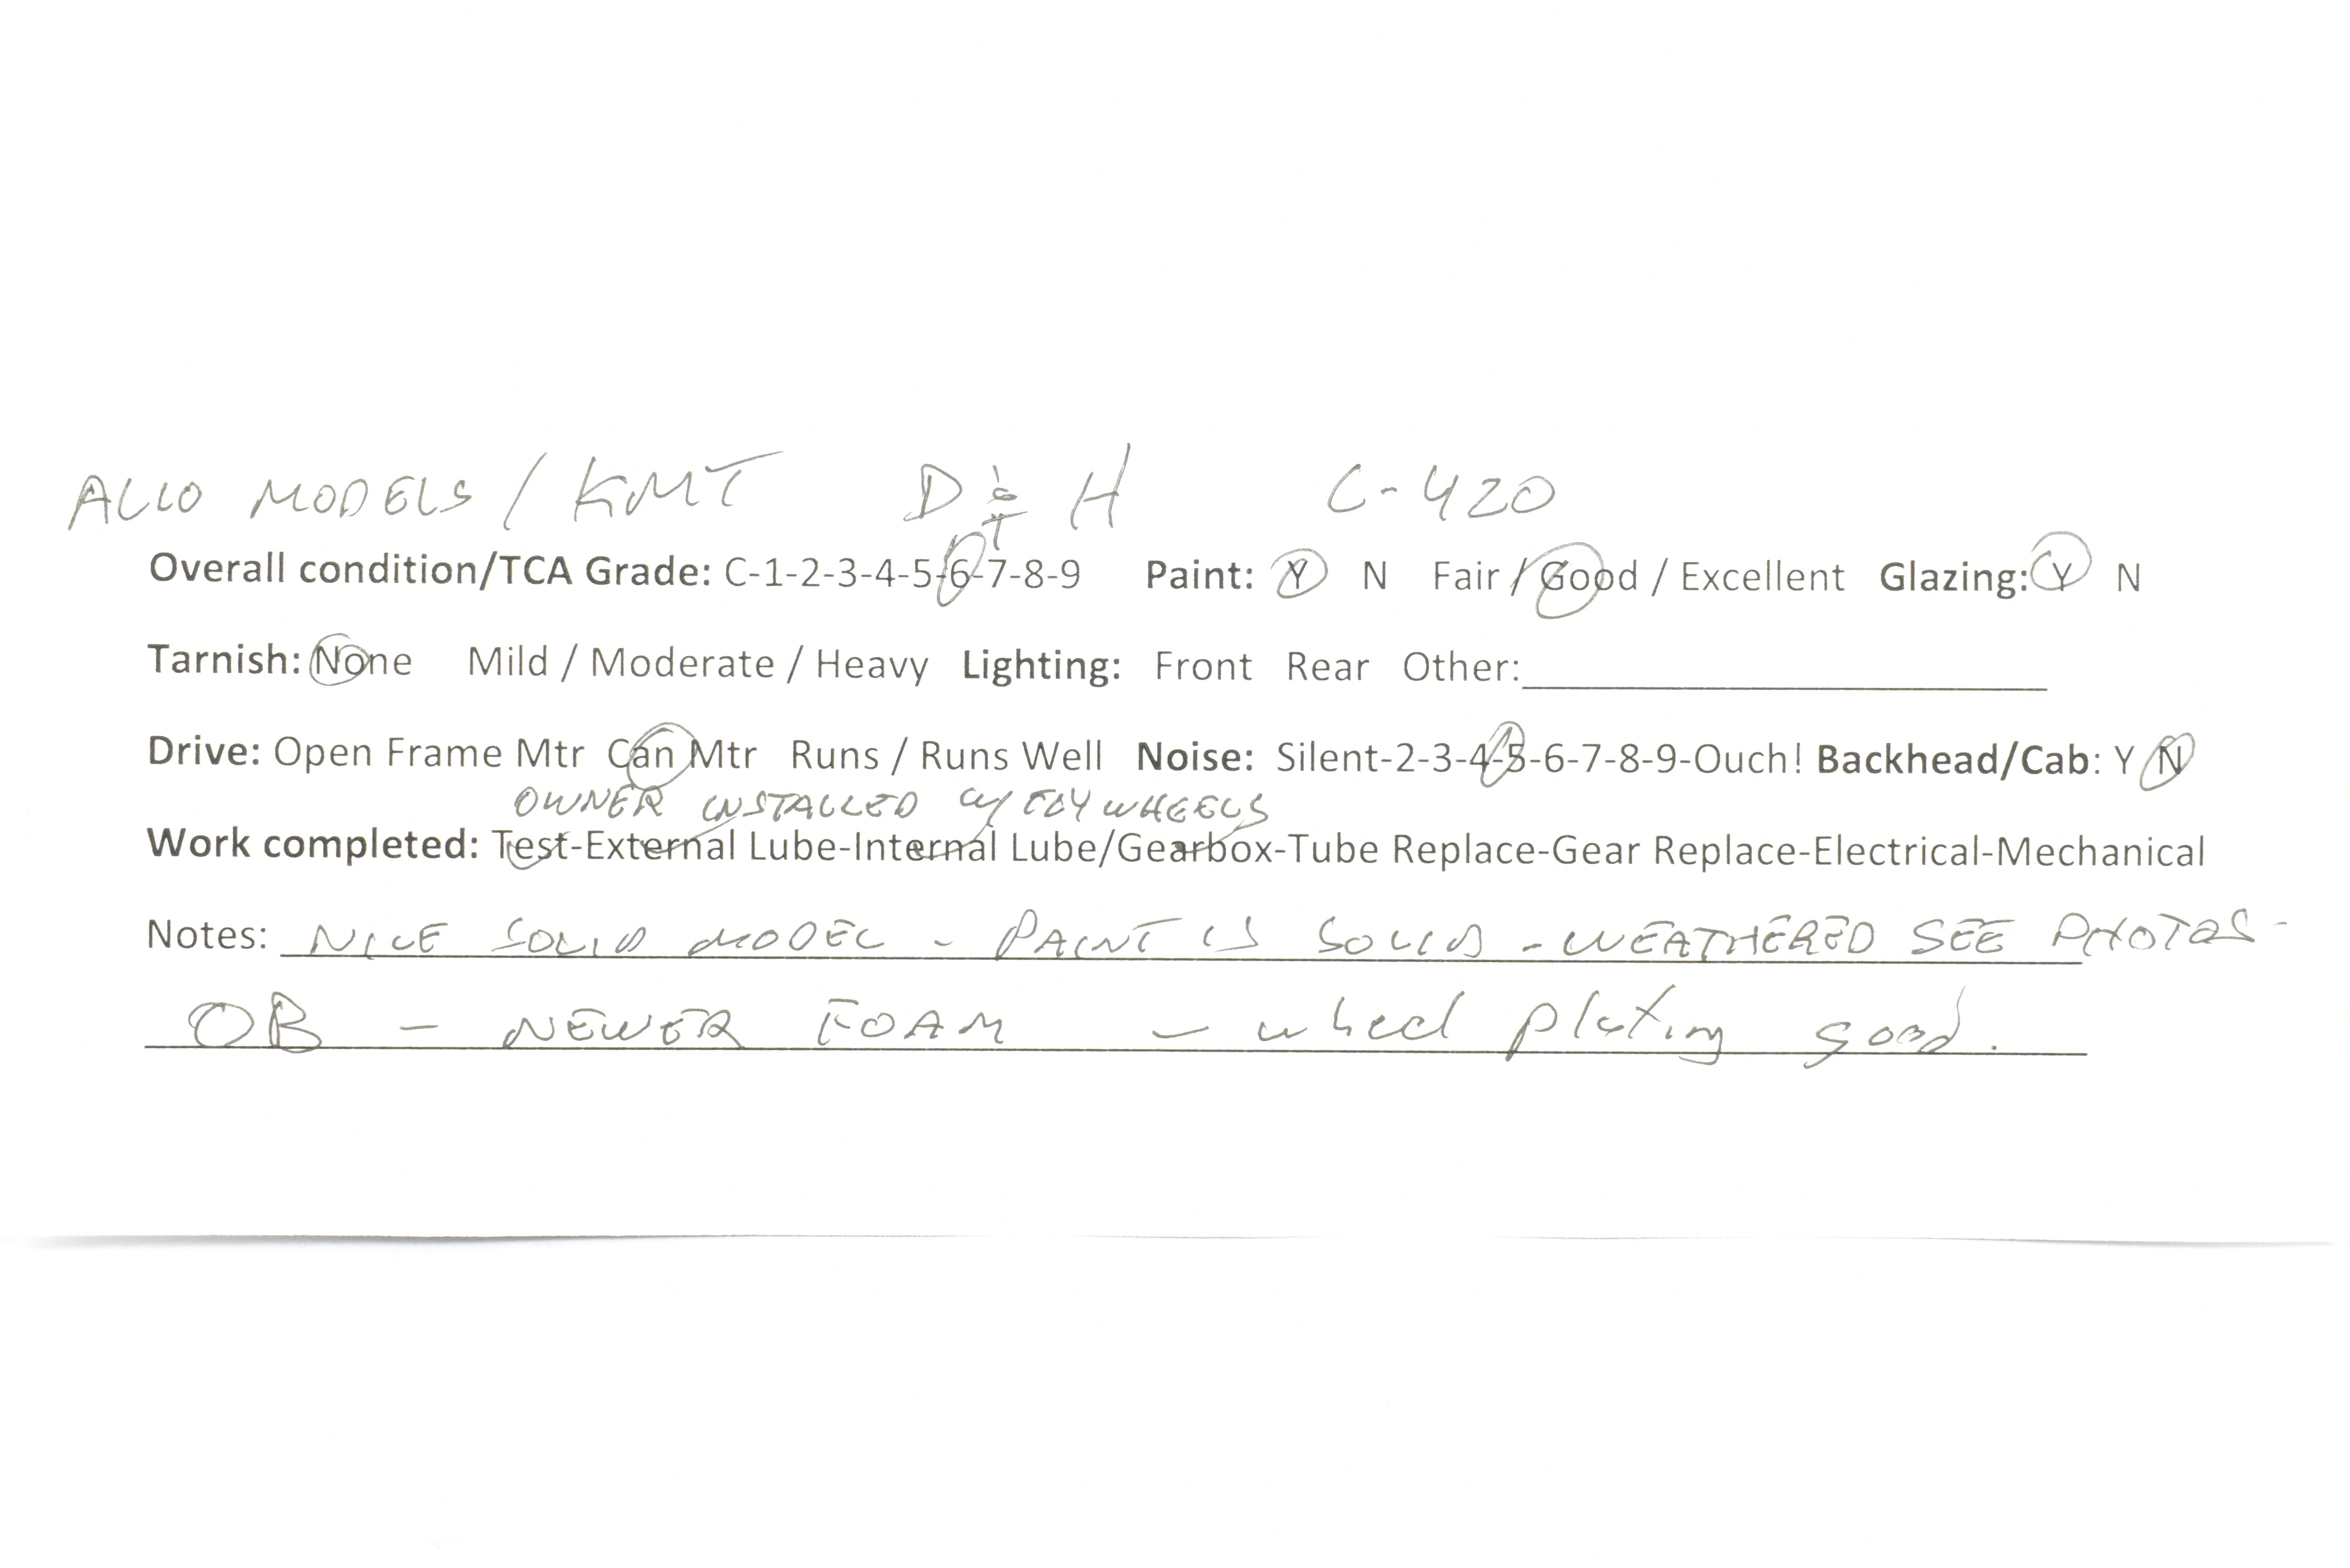 ALCO MODELS / KMT D & H C-420
+
Overall condition/TCA Grade: C-1-2-3-4-5-6-7-8-9 Paint: Y N Fair / Good / Excellent Glazing: Y N
Tarnish: None Mild / Moderate / Heavy Lighting: Front Rear Other:
Drive: Open Frame Mtr Can Mtr Runs / Runs Well Noise: Silent-2-3-4-5-6-7-8-9-Ouch! Backhead/Cab: Y N
OWNER INSTALLED w/ FLYWHEELS
Work completed: Test-External Lube-Internal Lube/Gearbox-Tube Replace-Gear Replace-Electrical-Mechanical
Notes: NICE SOLID MODEL - PAINT IS SOLID - WEATHERED SEE PHOTOS -
OB - NEWER FOAM - wheel plating good.